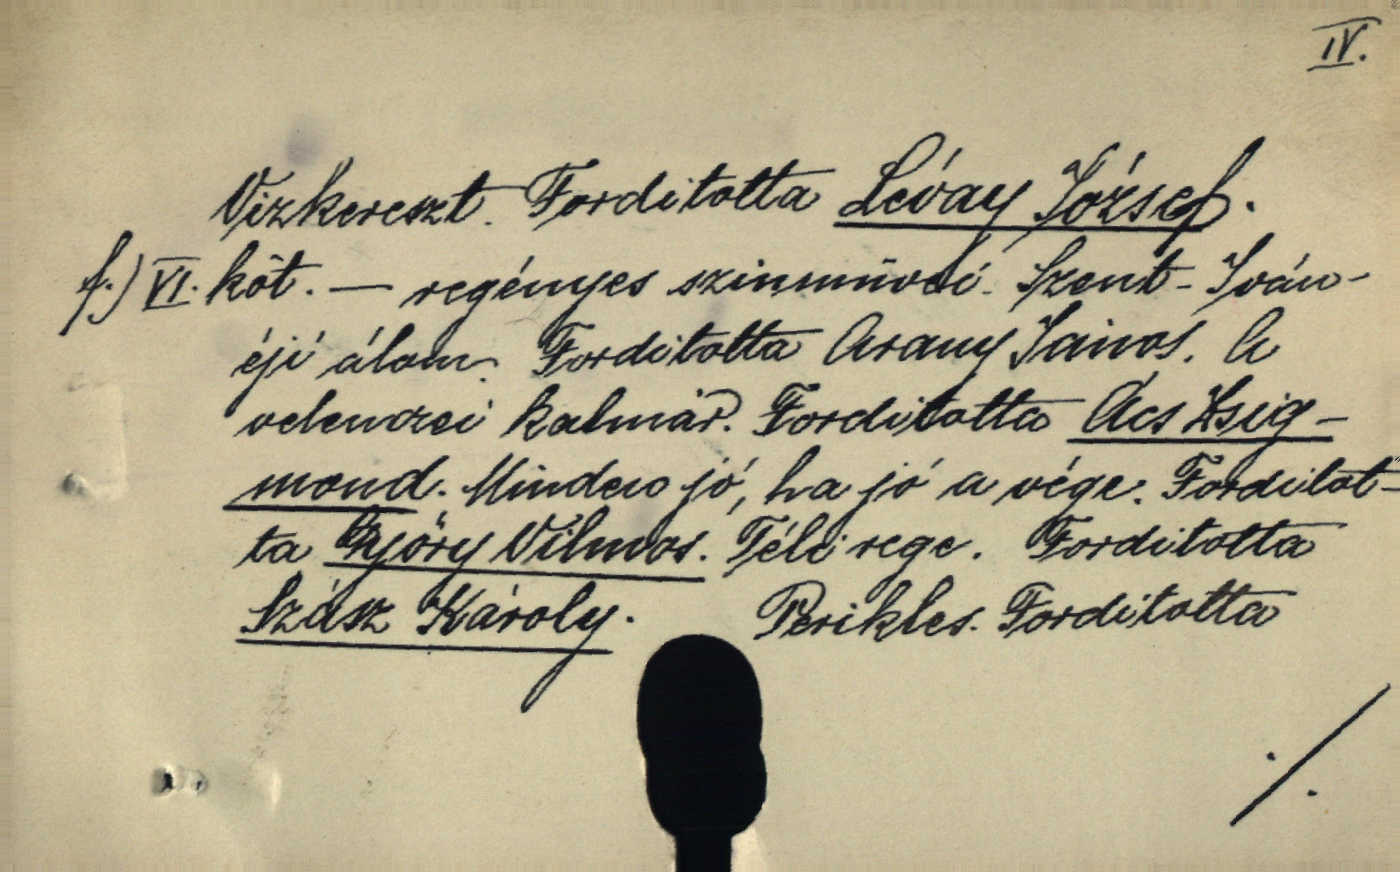 IV.
Vizkereszt. Fordította Lévay József.
f.) VI. köt. — regényes szinművei. Szent-Iván-
éji álom. Fordította Arany János. A
velenczei kalmár. Fordította Ács Zsig-
mond. Minden jó, ha jó a vége. Fordítot-
ta Győry Vilmos. Téli rege. Fordította
Szász Károly. Perikles. Fordította
./.